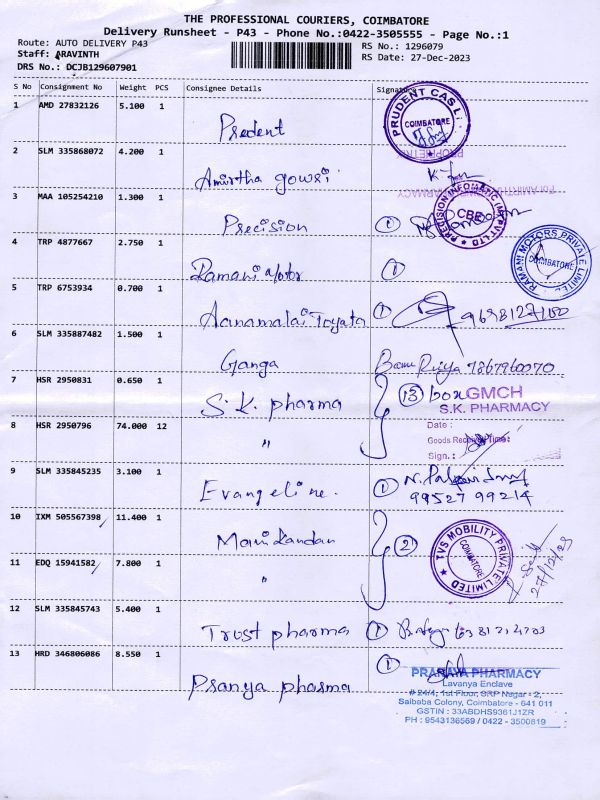 THE PROFESSIONAL COURIERS, COIMBATORE
Delivery Runsheet - P43 - Phone No.:0422-3505555 - Page No.:1
Route: AUTO DELIVERY P43
RS No.: 1296079
Staff: ARAVINTH
RS Date: 27-Dec-2023
DRS No.: DCJB129607901
S No Consignment No Weight PCS Consignee Details Signature
1 AMD 27832126 5.100 1
Predent
PRUDENT CAS
COIMBATORE
2 SLM 335868072 4.200 1
Amirtha gowsi
3 MAA 105254210 1.300 1
Precision 1
PRECISION INFOMATIC (M) PVT LTD
CBE
4 TRP 4877667 2.750 1
Ramani Motor 1
RAMANI MOTORS PRIVATE LIMITED
COIMBATORE
5 TRP 6753934 0.700 1
Aanamalai Toyata 1
6 SLM 335887482 1.500 1
Ganga
7 HSR 2950831 0.650 1
S.K. pharma 13 box
GMCH
S.K. PHARMACY
8 HSR 2950796 74.000 12
"
Date :
Goods Received Time:
Sign. :
9 SLM 335845235 3.100 1
Evangeline. 1
99527 99214
10 IXM 505567398 11.400 1
Manikandan 2
TVS MOBILITY PRIVATE LIMITED
COIMBATORE
27/12/23
11 EDQ 15941582 7.800 1
"
12 SLM 335845743 5.400 1
Trust pharma 1
13 HRD 346806086 8.550 1
Pranya pharma 1
PRANAYA PHARMACY
Lavanya Enclave
# 24/4, 1st Floor, SRP Nagar - 2,
Saibaba Colony, Coimbatore - 641 011
GSTIN : 33ABDHS9361J1ZR
PH : 9543136569 / 0422 - 3500819